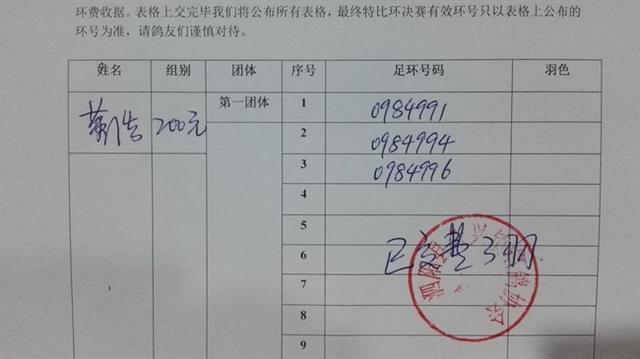 环费收据。表格上交完毕我们将公布所有表格，最终特比环决赛有效环号只以表格上公布的
环号为准，请鸽友们谨慎对待。
姓名 组别 团体 序号 足环号码 羽色
200元 第一团体 1 0984991
2 0984994
3 0984996
4
5
6 已交费3羽
7
8
9